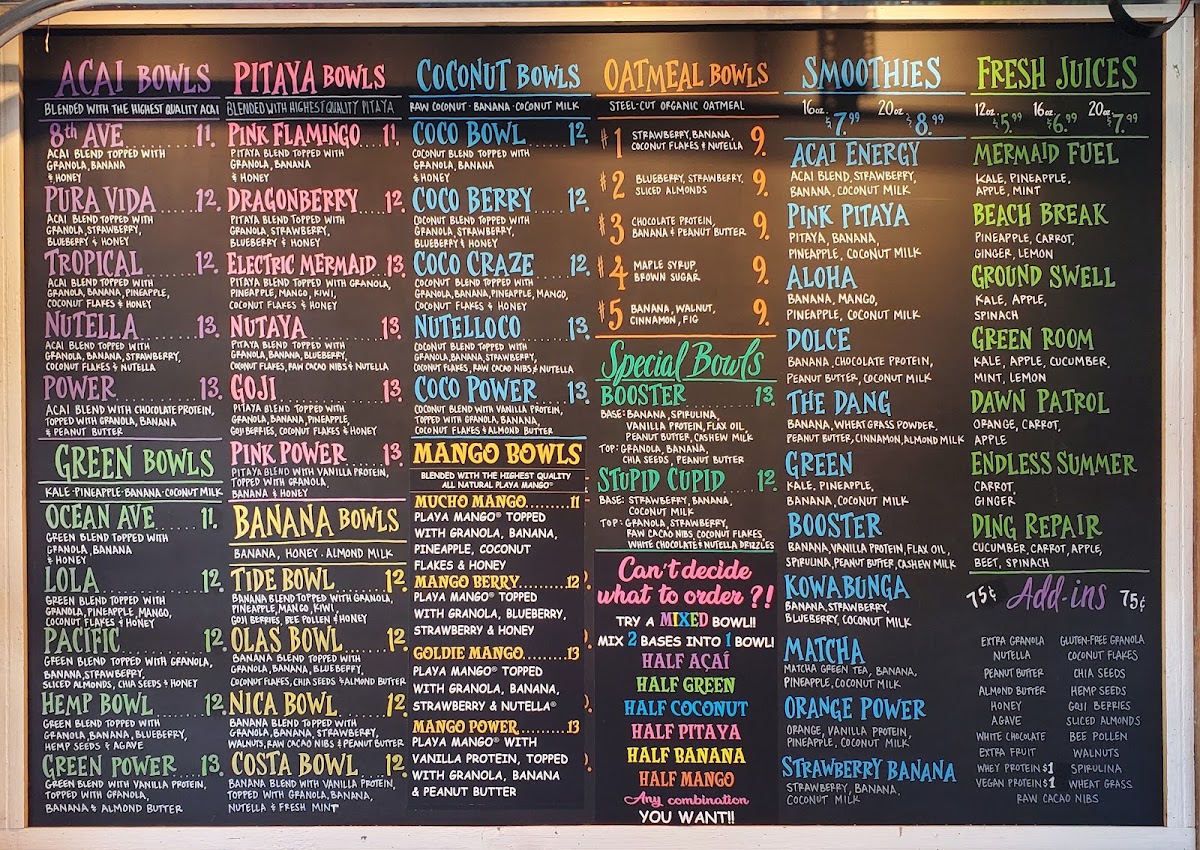 ACAI BOWLS
BLENDED WITH THE HIGHEST QUALITY ACAI
8th AVE 11.
ACAI BLEND TOPPED WITH
GRANOLA, BANANA
& HONEY
PURA VIDA 12.
ACAI BLEND TOPPED WITH
GRANOLA, STRAWBERRY,
BLUEBERRY & HONEY
TROPICAL 12.
ACAI BLEND TOPPED WITH
GRANOLA, BANANA, PINEAPPLE,
COCONUT FLAKES & HONEY
NUTELLA 13.
ACAI BLEND TOPPED WITH
GRANOLA, BANANA, STRAWBERRY,
COCONUT FLAKES & NUTELLA
POWER 13.
ACAI BLEND WITH CHOCOLATE PROTEIN,
TOPPED WITH GRANOLA, BANANA
& PEANUT BUTTER
GREEN BOWLS
KALE · PINEAPPLE · BANANA · COCONUT MILK
OCEAN AVE 11.
GREEN BLEND TOPPED WITH
GRANOLA, BANANA
& HONEY
LOLA 12.
GREEN BLEND TOPPED WITH
GRANOLA, PINEAPPLE, MANGO,
COCONUT FLAKES & HONEY
PACIFIC 12.
GREEN BLEND TOPPED WITH GRANOLA,
BANANA, STRAWBERRY,
SLICED ALMONDS, CHIA SEEDS & HONEY
HEMP BOWL 12.
GREEN BLEND TOPPED WITH
GRANOLA, BANANA, BLUEBERRY,
HEMP SEEDS & AGAVE
GREEN POWER 13.
GREEN BLEND WITH VANILLA PROTEIN,
TOPPED WITH GRANOLA,
BANANA & ALMOND BUTTER
PITAYA BOWLS
BLENDED WITH HIGHEST QUALITY PITAYA
PINK FLAMINGO 11.
PITAYA BLEND TOPPED WITH
GRANOLA, BANANA
& HONEY
DRAGONBERRY 12.
PITAYA BLEND TOPPED WITH
GRANOLA, STRAWBERRY,
BLUEBERRY & HONEY
ELECTRIC MERMAID 13.
PITAYA BLEND TOPPED WITH GRANOLA,
PINEAPPLE, MANGO, KIWI,
COCONUT FLAKES & HONEY
NUTAYA 13.
PITAYA BLEND TOPPED WITH
GRANOLA, BANANA, BLUEBERRY,
COCONUT FLAKES, RAW CACAO NIBS & NUTELLA
GOJI 13.
PITAYA BLEND TOPPED WITH
GRANOLA, BANANA, PINEAPPLE,
GOJI BERRIES, COCONUT FLAKES & HONEY
PINK POWER 13.
PITAYA BLEND WITH VANILLA PROTEIN,
TOPPED WITH GRANOLA,
BANANA & HONEY
BANANA BOWLS
BANANA, HONEY · ALMOND MILK
TIDE BOWL 12.
BANANA BLEND TOPPED WITH GRANOLA,
PINEAPPLE, MANGO, KIWI,
GOJI BERRIES, BEE POLLEN & HONEY
OLAS BOWL 12.
BANANA BLEND TOPPED WITH
GRANOLA, BANANA, BLUEBERRY,
COCONUT FLAKES, CHIA SEEDS & ALMOND BUTTER
NICA BOWL 12.
BANANA BLENDS TOPPED WITH
GRANOLA, BANANA, STRAWBERRY,
WALNUTS, RAW CACAO NIBS & PEANUT BUTTER
COSTA BOWL 12.
BANANA BLEND WITH VANILLA PROTEIN,
TOPPED WITH GRANOLA, BANANA,
NUTELLA & FRESH MINT
COCONUT BOWLS
RAW COCONUT · BANANA · COCONUT MILK
COCO BOWL 12.
COCONUT BLEND TOPPED WITH
GRANOLA, BANANA
& HONEY
COCO BERRY 12.
COCONUT BLEND TOPPED WITH
GRANOLA, STRAWBERRY,
BLUEBERRY & HONEY
COCO CRAZE 12.
COCONUT BLEND TOPPED WITH
GRANOLA, BANANA, PINEAPPLE, MANGO,
COCONUT FLAKES & HONEY
NUTELLOCO 13.
COCONUT BLEND TOPPED WITH
GRANOLA, BANANA, STRAWBERRY,
COCONUT FLAKES, RAW CACAO NIBS & NUTELLA
COCO POWER 13.
COCONUT BLEND WITH VANILLA PROTEIN,
TOPPED WITH GRANOLA, BANANA,
COCONUT FLAKES & ALMOND BUTTER
MANGO BOWLS
BLENDED WITH THE HIGHEST QUALITY
ALL NATURAL PLAYA MANGO®
MUCHO MANGO........11
PLAYA MANGO® TOPPED
WITH GRANOLA, BANANA,
PINEAPPLE, COCONUT
FLAKES & HONEY
MANGO BERRY.........12
PLAYA MANGO® TOPPED
WITH GRANOLA, BLUEBERRY,
STRAWBERRY & HONEY
GOLDIE MANGO........13
PLAYA MANGO® TOPPED
WITH GRANOLA, BANANA,
STRAWBERRY & NUTELLA®
MANGO POWER.........13
PLAYA MANGO® WITH
VANILLA PROTEIN, TOPPED
WITH GRANOLA, BANANA
& PEANUT BUTTER
OATMEAL BOWLS
STEEL-CUT ORGANIC OATMEAL
#1 STRAWBERRY, BANANA 9.
COCONUT FLAKES & NUTELLA
#2 BLUEBERRY, STRAWBERRY, 9.
SLICED ALMONDS
#3 CHOCOLATE PROTEIN, 9.
BANANA & PEANUT BUTTER
#4 MAPLE SYRUP, 9.
BROWN SUGAR
#5 BANANA, WALNUT, 9.
CINNAMON, FIG
Special Bowls
BOOSTER 13.
BASE: BANANA, SPIRULINA,
VANILLA PROTEIN, FLAX OIL,
PEANUT BUTTER, CASHEW MILK
TOP: GRANOLA, BANANA,
CHIA SEEDS, PEANUT BUTTER
STUPID CUPID 12.
BASE: STRAWBERRY, BANANA,
COCONUT MILK
TOP: GRANOLA, STRAWBERRY,
RAW CACAO NIBS COCONUT FLAKES,
WHITE CHOCOLATE & NUTELLA DRIZZLES
Can't decide
what to order?!
TRY A MIXED BOWL!!
MIX 2 BASES INTO 1 BOWL!
HALF AÇAÍ
HALF GREEN
HALF COCONUT
HALF PITAYA
HALF BANANA
HALF MANGO
Any combination
YOU WANT!!
SMOOTHIES
16oz. $7.99 20oz. $8.99
ACAI ENERGY
ACAI BLEND, STRAWBERRY,
BANANA, COCONUT MILK
PINK PITAYA
PITAYA, BANANA,
PINEAPPLE, COCONUT MILK
ALOHA
BANANA, MANGO,
PINEAPPLE, COCONUT MILK
DOLCE
BANANA, CHOCOLATE PROTEIN,
PEANUT BUTTER, COCONUT MILK
THE DANG
BANANA, WHEAT GRASS POWDER,
PEANUT BUTTER, CINNAMON, ALMOND MILK
GREEN
KALE, PINEAPPLE,
BANANA, COCONUT MILK
BOOSTER
BANANA, VANILLA PROTEIN, FLAX OIL,
SPIRULINA, PEANUT BUTTER, CASHEW MILK
KOWABUNGA
BANANA, STRAWBERRY,
BLUEBERRY, COCONUT MILK
MATCHA
MATCHA GREEN TEA, BANANA,
PINEAPPLE, COCONUT MILK
ORANGE POWER
ORANGE, VANILLA PROTEIN,
PINEAPPLE, COCONUT MILK
STRAWBERRY BANANA
STRAWBERRY, BANANA,
COCONUT MILK
FRESH JUICES
12oz. $5.99 16oz. $6.99 20oz. $7.99
MERMAID FUEL
KALE, PINEAPPLE,
APPLE, MINT
BEACH BREAK
PINEAPPLE, CARROT,
GINGER, LEMON
GROUND SWELL
KALE, APPLE,
SPINACH
GREEN ROOM
KALE, APPLE, CUCUMBER,
MINT, LEMON
DAWN PATROL
ORANGE, CARROT,
APPLE
ENDLESS SUMMER
CARROT,
GINGER
DING REPAIR
CUCUMBER, CARROT, APPLE,
BEET, SPINACH
75¢ Add-ins 75¢
EXTRA GRANOLA GLUTEN-FREE GRANOLA
NUTELLA COCONUT FLAKES
PEANUT BUTTER CHIA SEEDS
ALMOND BUTTER HEMP SEEDS
HONEY GOJI BERRIES
AGAVE SLICED ALMONDS
WHITE CHOCOLATE BEE POLLEN
EXTRA FRUIT WALNUTS
WHEY PROTEIN $1 SPIRULINA
VEGAN PROTEIN $1 WHEAT GRASS
RAW CACAO NIBS